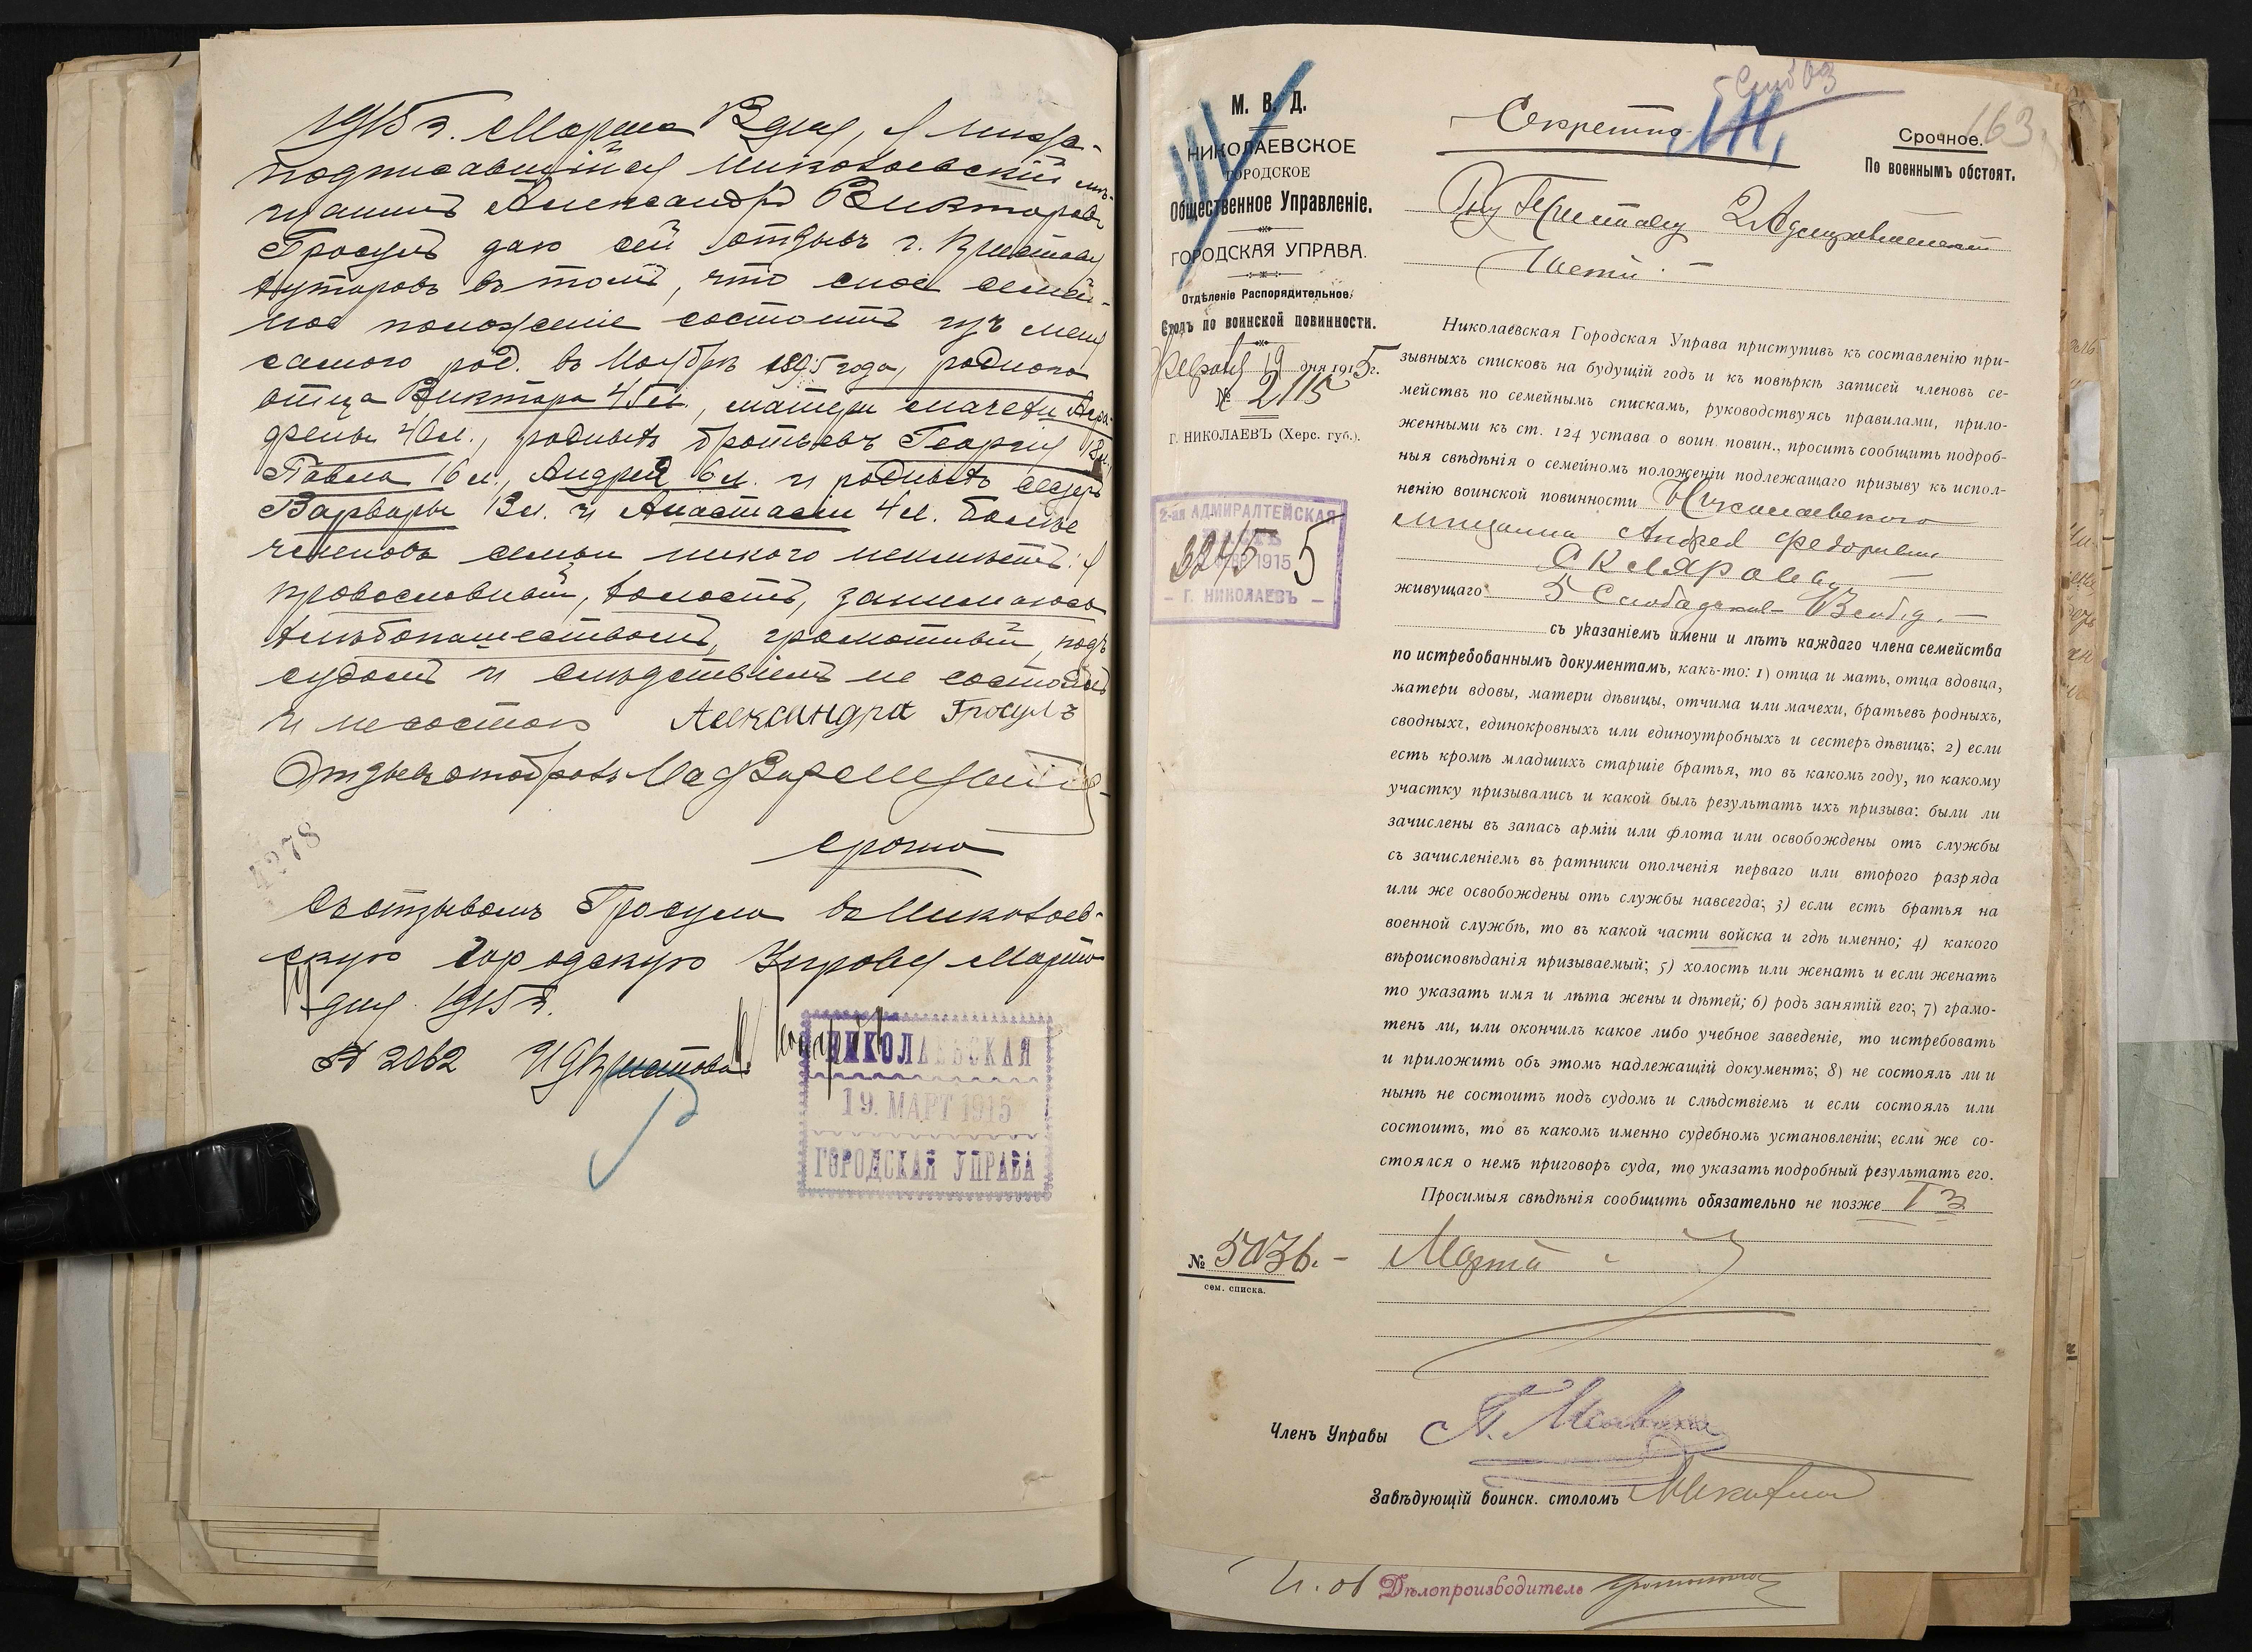 1915 г. Марта 13 дня, я нижеподписавшійся Николаевскій мѣщанинъ Александръ Викторовъ
Гросулъ даю сей отзывъ г. Приставу
хуторовъ въ томъ, что мое семейное положеніе состоитъ изъ меня
самого род. въ Ноябрѣ 1895 года, родного
отца Виктора 45 л., матери мачехи Агра-
фены 40 л., родныхъ братьевъ Георгія 18 л.
Павла 16 л., Андрея 6 л. и родныхъ сестеръ
Варвары 13 л. и Анастасіи 4 л. больше
членовъ семьи никого не имѣетъ. я
православный, холостъ, занимаюсь
хлѣбопашествомъ, грамотный, подъ
судомъ и слѣдствіемъ не состоялъ
и не состою Александра Гросулъ
Отзывъ отобралъ
4278
срочно
Съ отзывомъ Гросула въ Николаев-
скую Городскую Управу Марта
дня 1915 г.
№ 2062 И Д Пристава
НИКОЛАЕВСКАЯ
19. МАРТ 1915
ГОРОДСКАЯ УПРАВА
М. В. Д.
НИКОЛАЕВСКОЕ
ГОРОДСКОЕ
Общественное Управленіе.
ГОРОДСКАЯ УПРАВА.
Отдѣленіе Распорядительное.
Столъ по воинской повинности.
Февраля 19 дня 1915 г.
№ 2115
Г. НИКОЛАЕВЪ (Херс. губ.).
2-ая АДМИРАЛТЕЙСКАЯ
3245 1915 5
– Г. НИКОЛАЕВЪ –
5 Слоб 03
Секретно
163
Срочное.
По военнымъ обстоят.
Приставу 2 Адмиралтейской
Части. –
Николаевская Городская Управа приступивъ къ составленію при-
зывныхъ списковъ на будущій годъ и къ повѣркѣ записей членовъ се-
мействъ по семейнымъ спискамъ, руководствуясь правилами, прило-
женными къ ст. 124 устава о воин. повин., проситъ сообщить подроб-
ныя свѣдѣнія о семейномъ положеніи подлежащаго призыву къ испол-
ненію воинской повинности Николаевского
мѣщанина Андрея Федоровича
Склярова
живущаго 5 Слободская
съ указаніемъ имени и лѣтъ каждаго члена семейства
по истребованнымъ документамъ, какъ-то: 1) отца и мать, отца вдовца,
матери вдовы, матери дѣвицы, отчима или мачехи, братьевъ родныхъ,
сводныхъ, единокровныхъ или единоутробныхъ и сестеръ дѣвицъ; 2) если
есть кромѣ младшихъ старшіе братья, то въ какомъ году, по какому
участку призывались и какой былъ результатъ ихъ призыва: были ли
зачислены въ запасъ арміи или флота или освобождены отъ службы
съ зачисленіемъ въ ратники ополченія перваго или второго разряда
или же освобождены отъ службы навсегда; 3) если есть братья на
военной службѣ, то въ какой части войска и гдѣ именно; 4) какого
вѣроисповѣданія призываемый; 5) холостъ или женатъ и если женатъ
то указать имя и лѣта жены и дѣтей; 6) родъ занятій его; 7) грамо-
тенъ ли, или окончилъ какое либо учебное заведеніе, то истребовать
и приложить объ этомъ надлежащій документъ; 8) не состоялъ ли и
нынѣ не состоитъ подъ судомъ и слѣдствіемъ и если состоялъ или
состоитъ, то въ какомъ именно судебномъ установленіи; если же со-
стоялся о немъ приговоръ суда, то указать подробный результатъ его.
Просимыя свѣдѣнія сообщить обязательно не позже 13
Марта
№ 5036. –
сем. списка.
Членъ Управы
Завѣдующій воинск. столомъ
И. об Дѣлопроизводитель